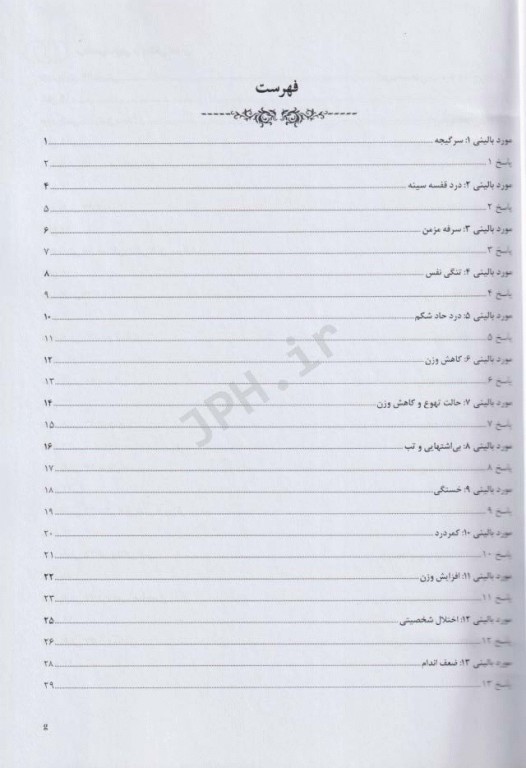 فهرست
مورد بالینی ۱: سرگیجه ۱
پاسخ ۱ ۲
مورد بالینی ۲: درد قفسه سینه ۴
پاسخ ۲ ۵
مورد بالینی ۳: سرفه مزمن ۶
پاسخ ۳ ۷
مورد بالینی ۴: تنگی نفس ۸
پاسخ ۴ ۹
مورد بالینی ۵: درد حاد شکم ۱۰
پاسخ ۵ ۱۱
مورد بالینی ۶: کاهش وزن ۱۲
پاسخ ۶ ۱۳
مورد بالینی ۷: حالت تهوع و کاهش وزن ۱۴
پاسخ ۷ ۱۵
مورد بالینی ۸: بی‌اشتهایی و تب ۱۶
پاسخ ۸ ۱۷
مورد بالینی ۹: خستگی ۱۸
پاسخ ۹ ۱۹
مورد بالینی ۱۰: کمردرد ۲۰
پاسخ ۱۰ ۲۱
مورد بالینی ۱۱: افزایش وزن ۲۲
پاسخ ۱۱ ۲۳
مورد بالینی ۱۲: اختلال شخصیتی ۲۵
پاسخ ۱۲ ۲۶
مورد بالینی ۱۳: ضعف اندام ۲۸
پاسخ ۱۳ ۲۹
JPH.ir